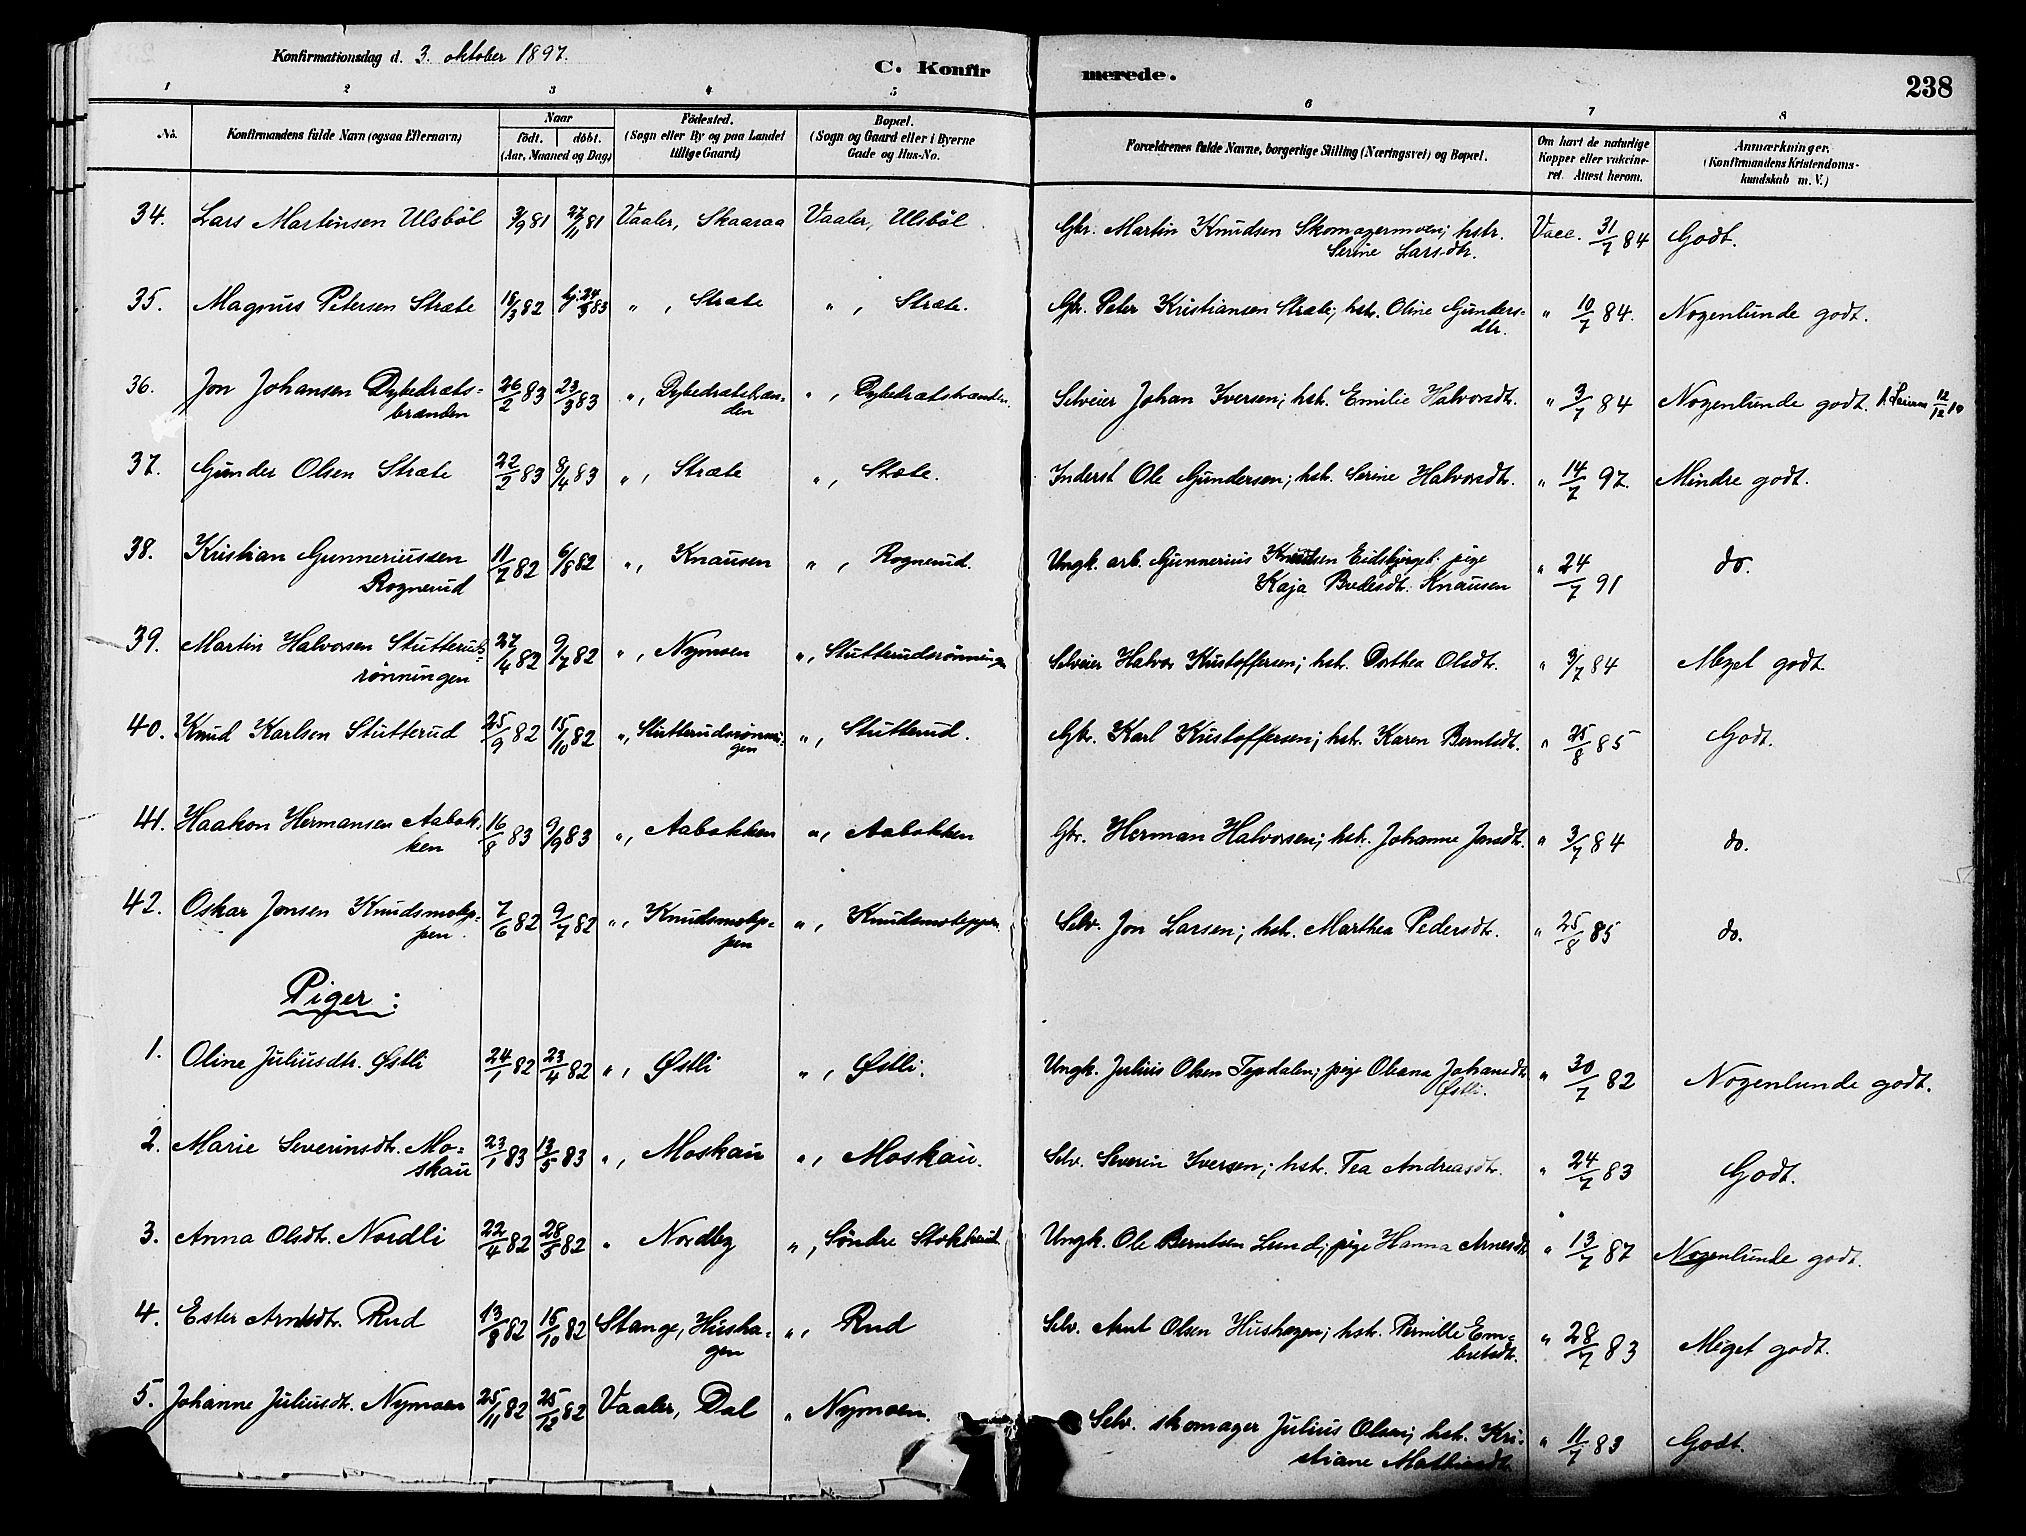 Konfirmationsdag d. 3. oktober 1897.
C. Konfir merede.
238
1 2 3 4 5 6 7 8
No.
Konfirmandens fulde Navn (ogsaa Efternavn)
Naar
födt. döbt.
(Aar, Maaned og Dag)
Födested.
(Sogn eller By og paa Landet
tillige Gaard)
Bopæl.
(Sogn og Gaard eller i Byerne
Gade og Hus-No.
Forældrenes fulde Navne, borgerlige Stilling (Næringsvei) og Bopæl.
Om havt de naturlige
Kopper eller vakcine-
ret. Attest herom.
Anmærkninger.
(Konfirmandens Kristendoms-
kundskab m. V.)
34. Lars Martinsen Ulsböl 3/9 81 27/11 81 Vaaler, Skaaraa Vaaler, Ulsböl Gbr. Martin Knudsen Skomagermoen; hstr. Vacc. 31/7 84 Godt.
Serine Larsdtr.
35. Magnus Petersen Stræte 18/3 82 24/3 83 " , Stræte " , Stræte. Gbr. Peter Kristiansen Stræte; hstr. Oline Gunders= " 10/7 84. Nogenlunde godt.
dtr.
36. Jon Johansen Dybedræts= 26/2 83 23/3 83 " , Dybedrætsbræn= " , Dybedrætsbrænden. Selveier Johan Iversen; hstr. Emilie Halvorsdtr. " 3/7 84 Nogenlunde godt. 12/12 19
brænden den
37. Gunder Olsen Stræte 22/2 83 8/4 83 " , Stræte " , Stæte. Inderst Ole Gundersen; hstr. Serine Halvorsdtr. " 14/7 97. Mindre godt.
38. Kristian Gunneriussen 11/7 82 6/8 82 " , Knausen " , Rognerud. Ungk. arb. Gunnerius Knudsen Eidsbjerget. pige " 24/7 91 do.
Rognerud Kaja Bredesdtr. Knausen
39. Martin Halvorsen Stutterud= 27/4 82 9/7 82 " , Nymoen " , Stutterudrønningen Selveier Halvor Kristoffersen; hstr. Dorthea Olsdtr. " 3/7 84 Meget godt.
rønningen
40. Knud Karlsen Stutterud 25/9 82 15/10 82 " , Stutterudrønnin= " , Stutterud. Gbr. Karl Kristoffersen; hstr. Karen Berntsdtr. " 25/8 85 Godt.
gen
41. Haakon Hermansen Aabak= 16/8 83 9/9 83 " , Aabakken " , Aabakken Gbr. Herman Halvorsen; hstr. Johanne Jonsdtr. " 3/7 84 do.
ken
42. Oskar Jonsen Knudsmotep= 7/6 82 9/7 82 " , Knudsmotep= " , Knudsmoteppen. Selv. Jon Larsen; hstr. Marthea Pedersdtr. " 25/8 85 do.
pen. pen
Piger:
1. Oline Juliusdtr. Østli 24/1 82 23/4 82 " , Østli " , Østli. Ungk. Julius Olsen; pige Oliana Johansdtr. " 30/7 82 Nogenlunde godt.
Østli.
2. Marie Severinsdtr. Mo= 23/1 83 13/5 83 " , Moskau " , Moskau. Selv. Severin Iversen; hstr. Tea Andreasdtr. " 24/7 83 Godt.
skau
3. Anna Olsdtr. Nordli 22/4 82 28/5 82 " Nordby " , Søndre Stokkerud Ungk. Ole Berntsen Lund; pige Hanna Arnesdtr " 13/7 87 Nogenlunde godt.
4. Ester Arntsdtr. Rud 13/8 82 15/10 82 Stange, Husha= " , Rud Selv. Arnt Olsen Hushagen; hstr. Pernille Em= " 28/7 83 Meget godt.
gen bretsdtr.
5. Johanne Juliusdtr. Nymoen 25/11 82 25/12 82 Vaaler, Dal " Nymoen. Selv. skomager Julius Olsen; hstr. Kri= " 11/7 83 Godt.
stiane Mathiasdtr